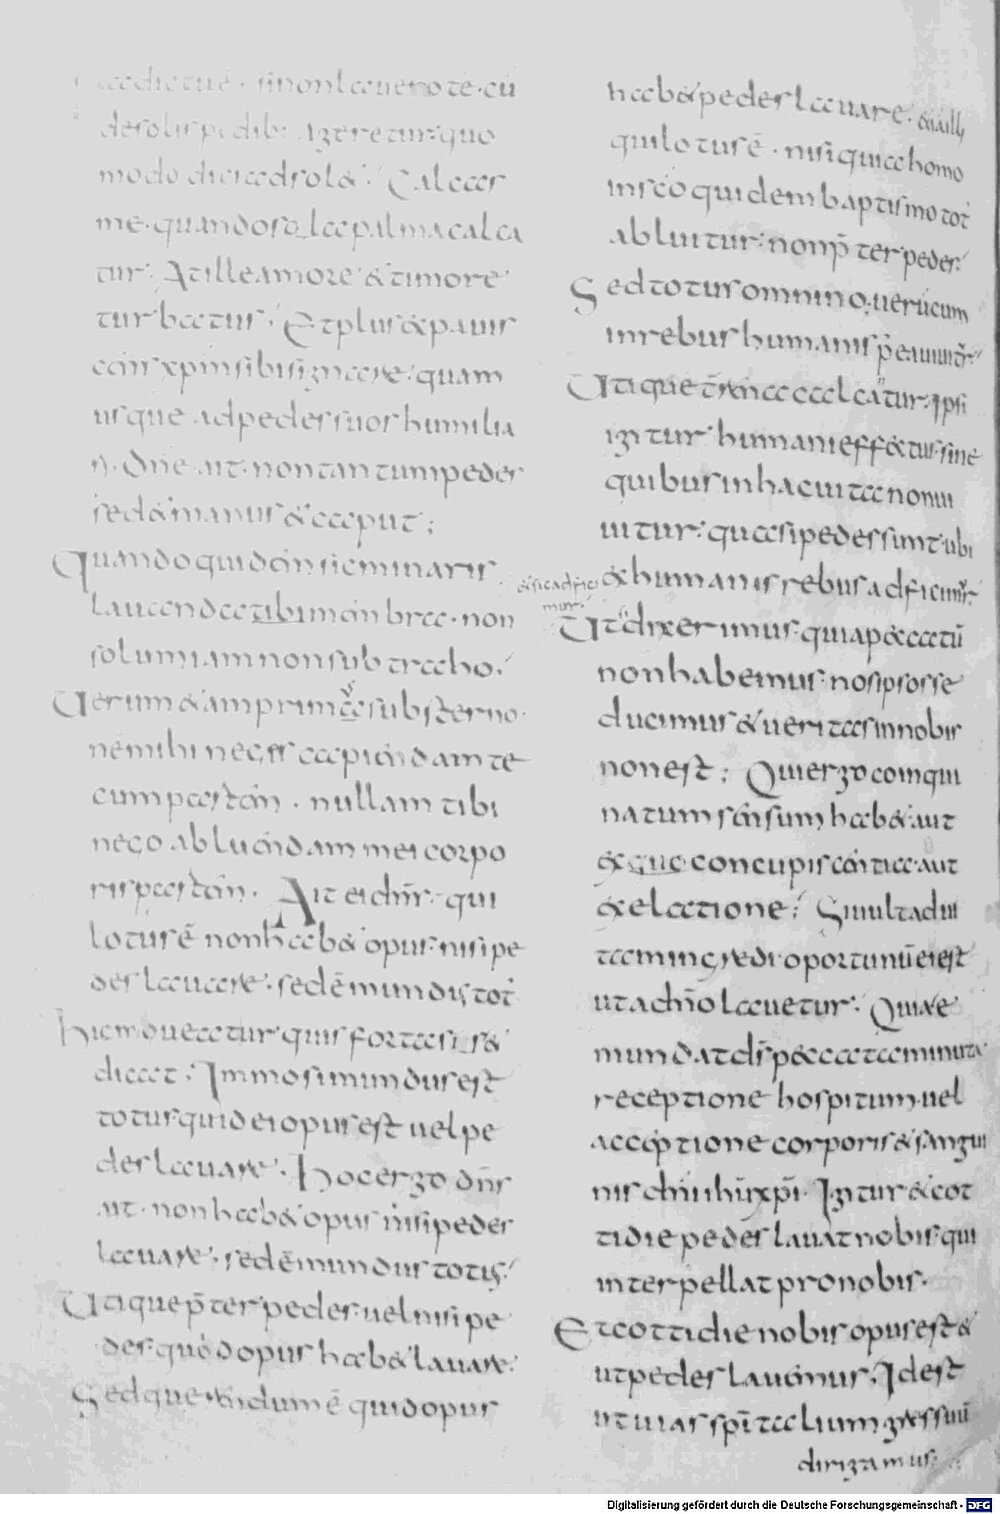 dictũ · si non lauero te · cũ
de solis pedib: ageretur · quo
modo dicit ad sol&. Calces
me · quando sola palma calca
tur. At ille amore & timore
turbatus. Et plus expauis
cens xpm sibi signare · quam
usque ad pedes suos humilia
ri. Dñe ait · non tantum pedes
sed & manus & caput ;
Quando quidem sic minaris
lauanda tibi membra · non
solum iam non subtraho.
Uerum & iam prima substerno
ne mihi neges capiendam te
cum partem . nullam tibi
nego abluendam mei corpo
ris partem. Ait ei dñs · qui
lotus ẽ non hab& opus nisi pe
des lauare · sed ẽ mundus tot'
Hic mouetur quis fortasis &
dicat . Immo si mundus est
totus quid ei opus est uel pe
des lauare. Hoc ergo dñs
ait · non hab& opus nisi pedes
lauare · sed ẽ mundus totus.
Utique p̃ter pedes uel nisi pe
des · quod opus hab& lauare.
Sed querendum ẽ quid opus
hab& pedes lauare · & ait illi
qui lotus ẽ · nisi quia homo
in sc̃o quidem baptismo tot'
abluitur · non p̃ter pedes
Sed totus omnino · uerũ cum
in rebus humanis p̃ea uiuit'
Utique t̃ra calcatur. Ipsi
igitur humani effectus sine
quibus in hac uita non ui
uitur · quasi pedes sunt · ubi
& sic adfici
mur
ex humanis rebus adficimur
Ut dixerimus quia peccatũ
non habemus · nos ipsos se
ducimus & ueritas in nobis
non est ; Qui ergo coinqui
natum sensum hab& · aut
ex que concupiscentia · aut
ex elatione ; Simul tad in
tamingredi oportunũ ei est
ut a dño lauetur. Quare
mundat dñs peccata minuta
receptione hospitum · uel
acceptione corporis & sangui
nis dñi ihũ xp̃i. Igitur & cot
tidie pedes lauat nobis · qui
interpellat pro nobis.
Et cottidie nobis opus est &
ut pedes lauemus. Id est
ut uias sp̃italium gressuũ
dirigamus.
Digitalisierung gefördert durch die Deutsche Forschungsgemeinschaft - DFG